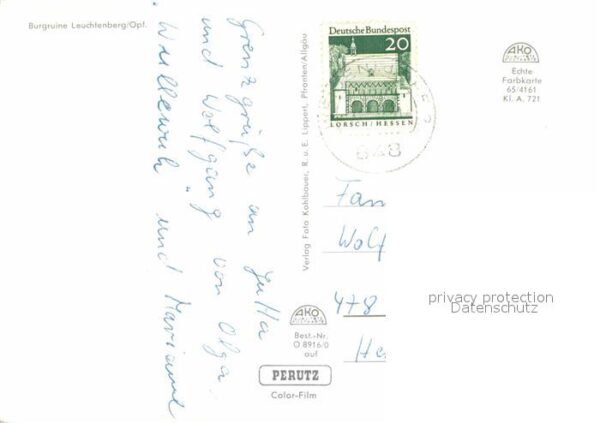 Burgruine Leuchtenberg/Opf.
Grenzgrüße an Jutta
und Wolfgang von Olga,
und Marianne
Verlag Foto Kohlbauer, R. u. E. Lippert, Pfronten/Allgäu
Deutsche Bundespost
20
LORSCH/HESSEN
648
AKO
Echte
Farbkarte
65/4161
Kl. A. 721
Fam
Wolf
478
privacy protection
Datenschutz
AKO
Best.-Nr.
O 8916/0
auf
PERUTZ
Color-Film